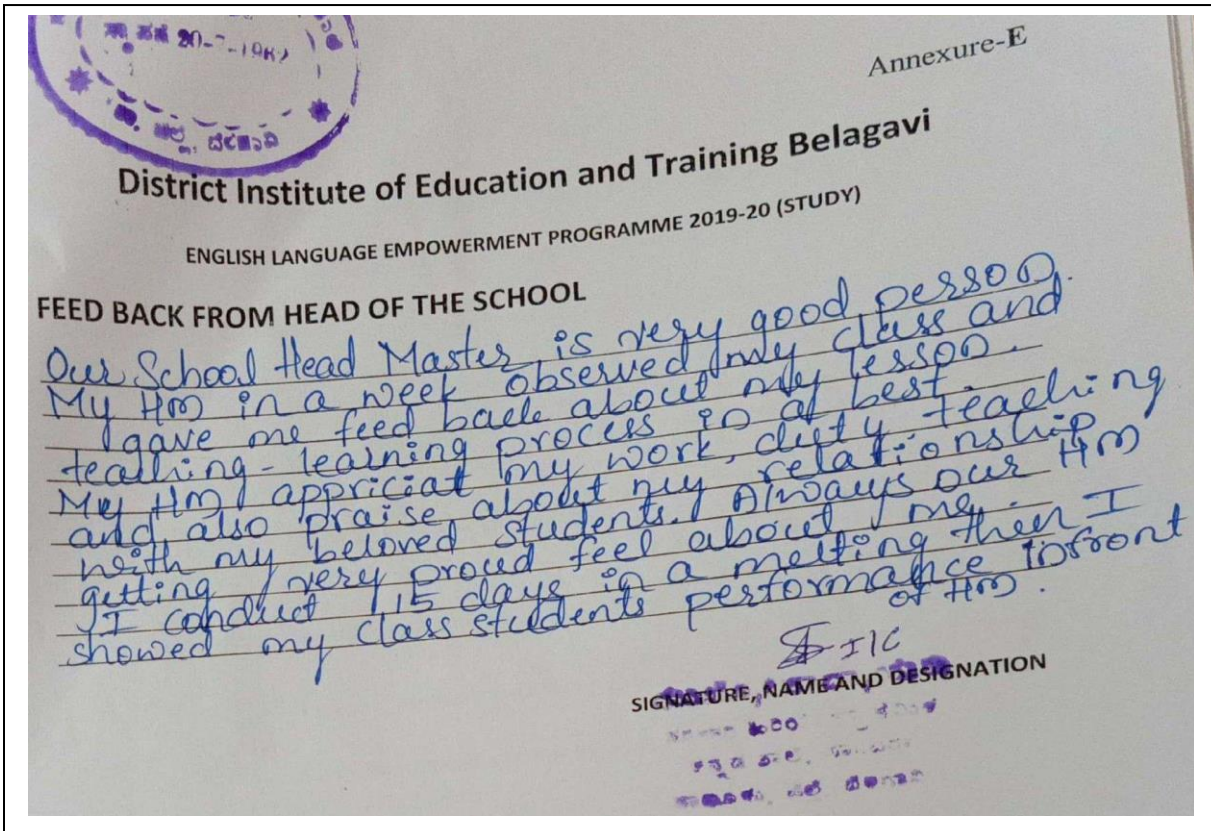 20-7-19
Annexure-E
ಬೆಳಗಾವಿ
District Institute of Education and Training Belagavi
ENGLISH LANGUAGE EMPOWERMENT PROGRAMME 2019-20 (STUDY)
FEED BACK FROM HEAD OF THE SCHOOL
Our School Head Master is very good person.
My Hm in a week observed my class and
gave me feed back about my lesson.
teaching - learning process is at best.
My Hm appriciat my work, duty teaching
and also praise about my relationship
with my beloved students. Always our Hm
getting very proud feel about me.
I conduct 15 days in a melting then I
showed my class students performance infront
of Hm.
I/C
SIGNATURE, NAME AND DESIGNATION